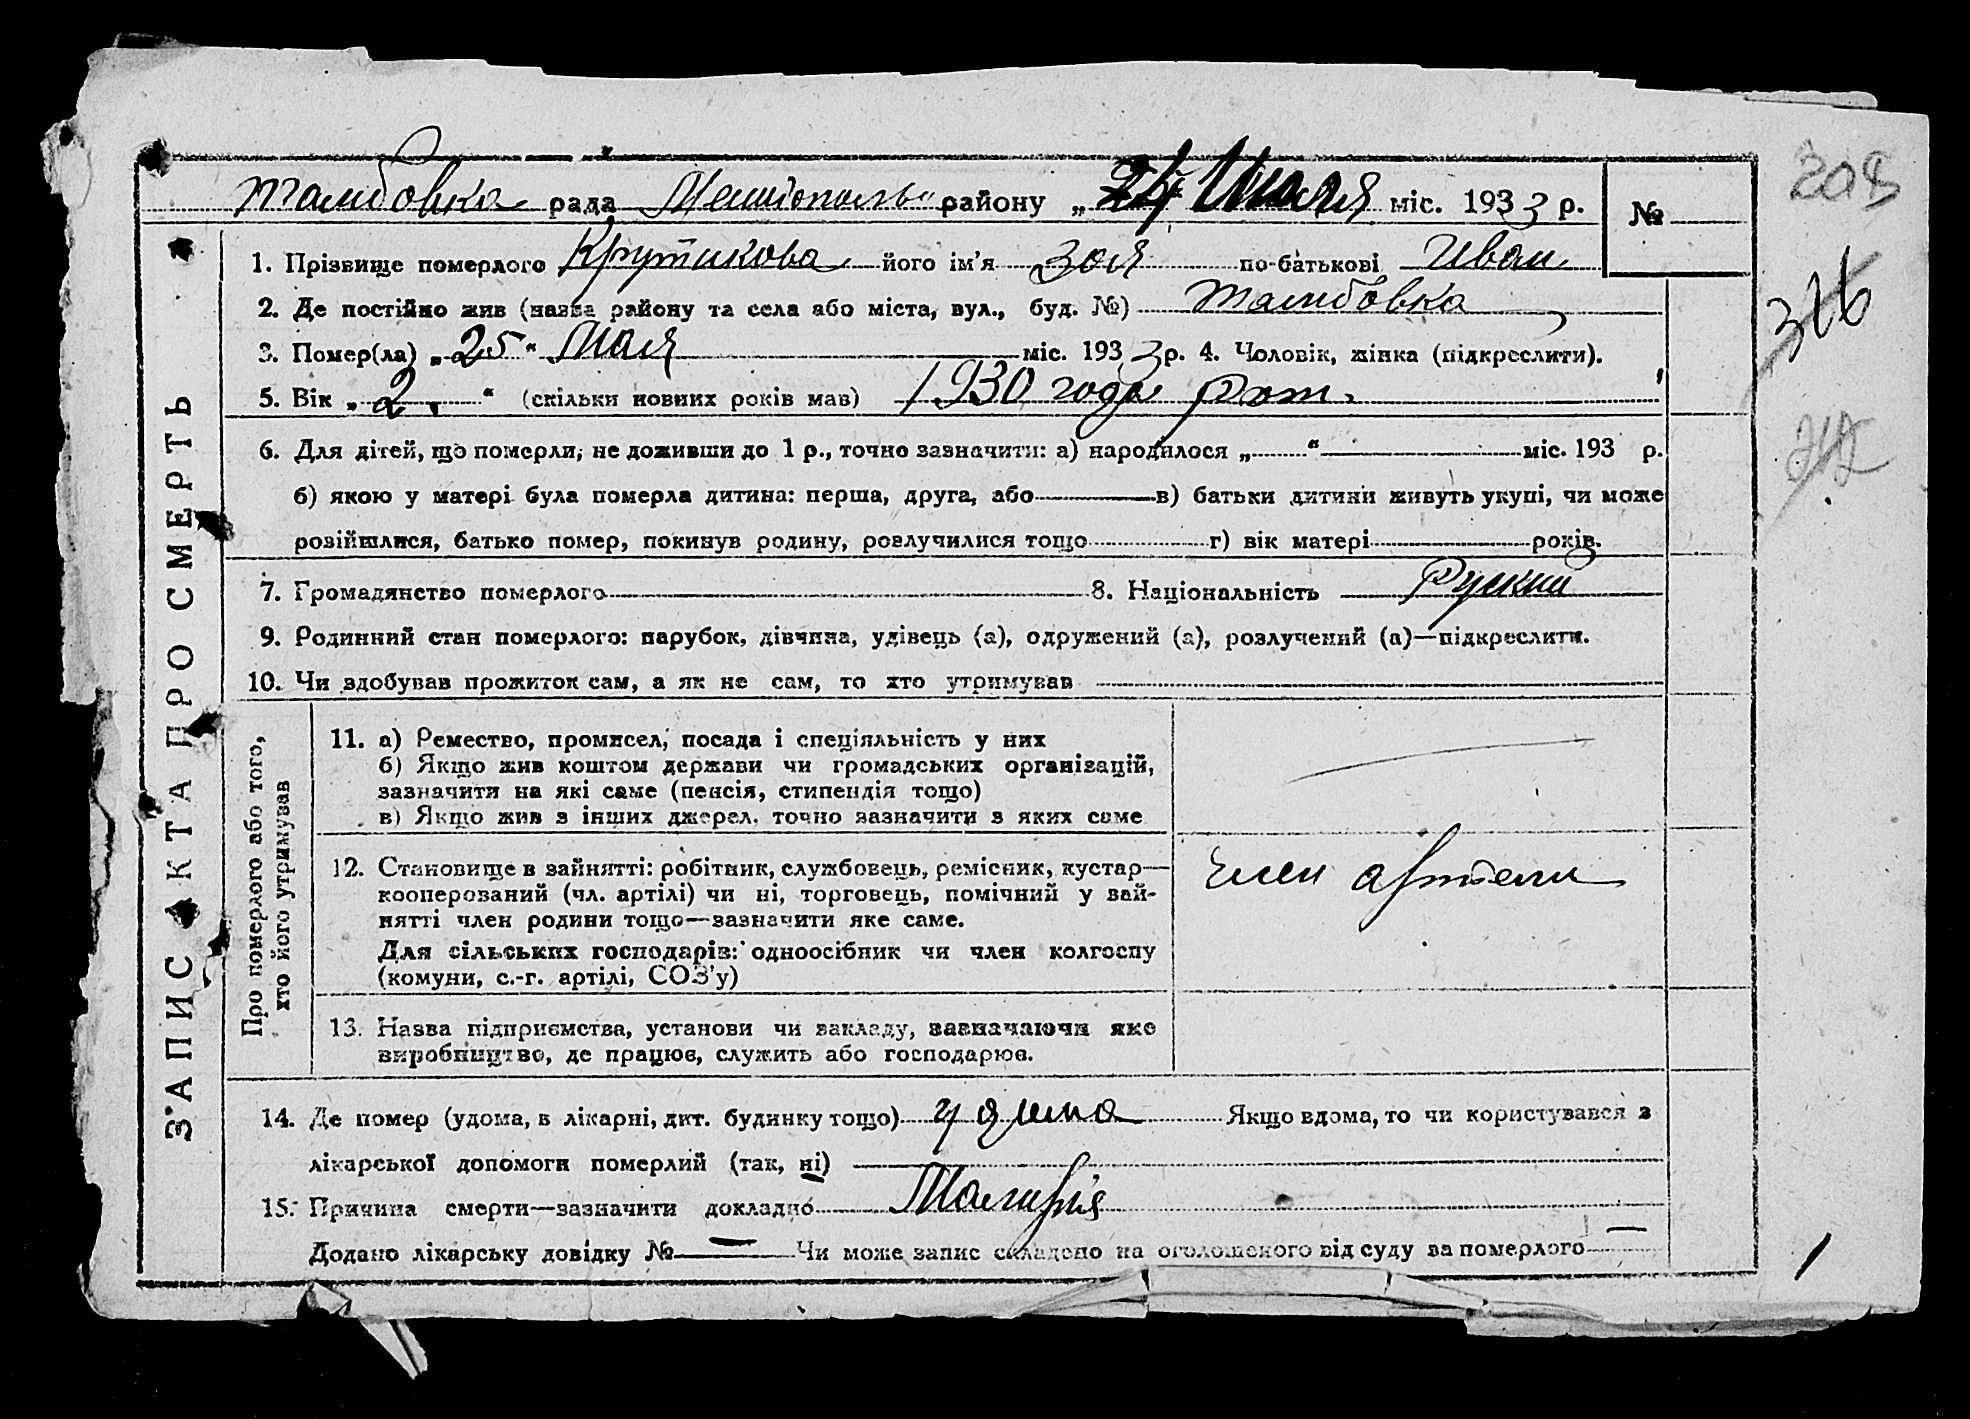 Тамбовка рада Мелитополь районy „24 Июля міс. 1933 р. №
208
1. Прізвище померлого Крутикова його ім'я Зоя по-батькові Иван
2. Де постійно жив (назва району та села або міста, вул., буд. №) Тамбовка
316
3. Помер(ла) „25" Мая міс. 1933 р. 4. Чоловік, жінка (підкреслити).
5. Вік „2" (скільки повних років мав) 1930 года рож.
212
6. Для дітей, що померли, не доживши до 1 р., точно зазначити: а) народилося „ " міс. 193 р.
б) якою у матері була померла дитина: перша, друга, або в) батьки дитини живуть укупі, чи може
розійшлися, батько помер, покинув родину, розлучилися тощо г) вік матері років.
7. Громадянство померлого 8. Національність Руский
9. Родинний стан померлого: парубок, дівчина, удівець (а), одружений (а), розлучений (а)—підкреслити.
10. Чи здобував прожиток сам, а як не сам, то хто утримував
ЗАПИС АКТА ПРО СМЕРТЬ
Про померлого або того,
хто його утримував
11. а) Ремество, промисел, посада і спеціяльність у них
б) Якщо жив коштом держави чи громадських організацій,
зазначити на які саме (пенсія, стипендія тощо)
в) Якщо жив з інших джерел, точно зазначити з яких саме
12. Становище в зайнятті: робітник, службовець, ремісник, кустар—
кооперований (чл. артілі) чи ні, торговець, помічний у зай-
нятті член родини тощо—зазначити яке саме.
Член артели
Для сільських господарів: одноосібник чи член колгоспу
(комуни, с.-г. артілі, СОЗ'у)
13. Назва підприємства, установи чи закладу, зазначаючи яке
виробництво, де працює, служить або господарює.
14. Де помер (удома, в лікарні, дит. будинку тощо) у дома Якщо вдома, то чи користувався з
лікарської допомоги померлий (так, ні)
15. Причина смерти—зазначити докладно Малярія
Додано лікарську довідку № — Чи може запис складено на оголошеного від суду за померлого —